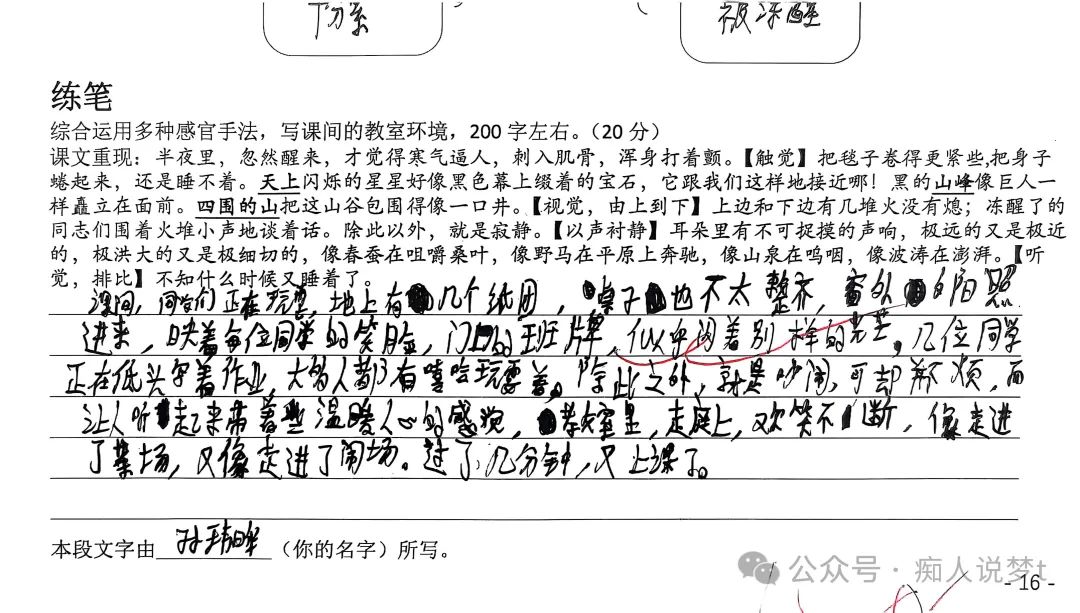 被冻醒
练笔
综合运用多种感官手法，写课间的教室环境，200 字左右。（20 分）
课文重现：半夜里，忽然醒来，才觉得寒气逼人，刺入肌骨，浑身打着颤。【触觉】把毯子卷得更紧些,把身子
蜷起来，还是睡不着。天上闪烁的星星好像黑色幕上缀着的宝石，它跟我们这样地接近哪！黑的山峰像巨人一
样矗立在面前。四围的山把这山谷包围得像一口井。【视觉，由上到下】上边和下边有几堆火没有熄；冻醒了的
同志们围着火堆小声地谈着话。除此以外，就是寂静。【以声衬静】耳朵里有不可捉摸的声响，极远的又是极近
的，极洪大的又是极细切的，像春蚕在咀嚼桑叶，像野马在平原上奔驰，像山泉在呜咽，像波涛在澎湃。【听
觉，排比】不知什么时候又睡着了。
课间，同学们正在玩耍，地上有几个纸团，桌子也不太整齐，窗外的阳照
进来，映着每位同学的笑脸，门口的班牌，似乎闪着别样的光芒，几位同学
正在低头写着作业，大的人都有嘻哈玩耍着。除此之外，就是吵闹，可却不烦，而
让人听起来带着些温暖人心的感觉，教室里，走廊上，欢笑不断，像走进
了菜场，又像走进了闹场。过了几分钟，又上课了。
本段文字由 孙玮晔 （你的名字）所写。
公众号 · 痴人说梦t
- 16 -